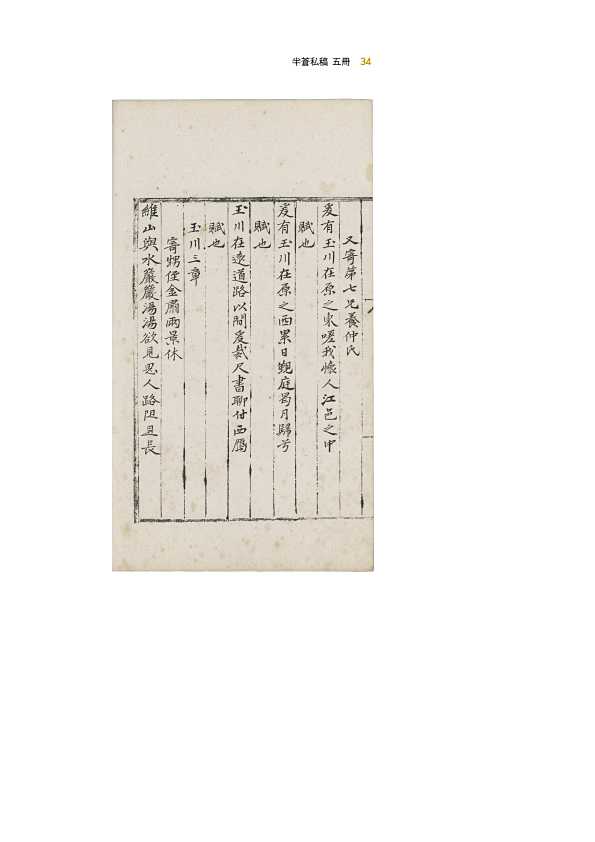 半蒼私稿 五冊 34
又寄第七兄養仲氏
爰有玉川在原之東嗟我懷人江邑之中
賦也
爰有玉川在原之西累日覲庭曷月歸兮
賦也
玉川在遠道路以間爰裁尺書聊付西鴈
賦也
玉川三章
寄甥侄金肅雨景休
維山與水巖巖湯湯欲見思人路阻且長